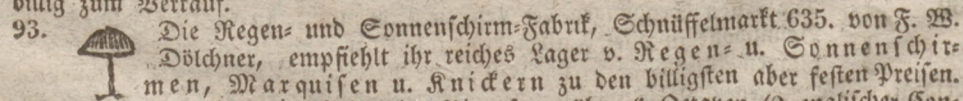 billig zum Verkauf.
93. Die Regen- und Sonnenschirm-Fabrik, Schnüffelmarkt 635. von F. W.
Dölchner, empfiehlt ihr reiches Lager v. Regen- u. Sonnenschir-
men, Marquisen u. Knickern zu den billigsten aber festen Preisen.